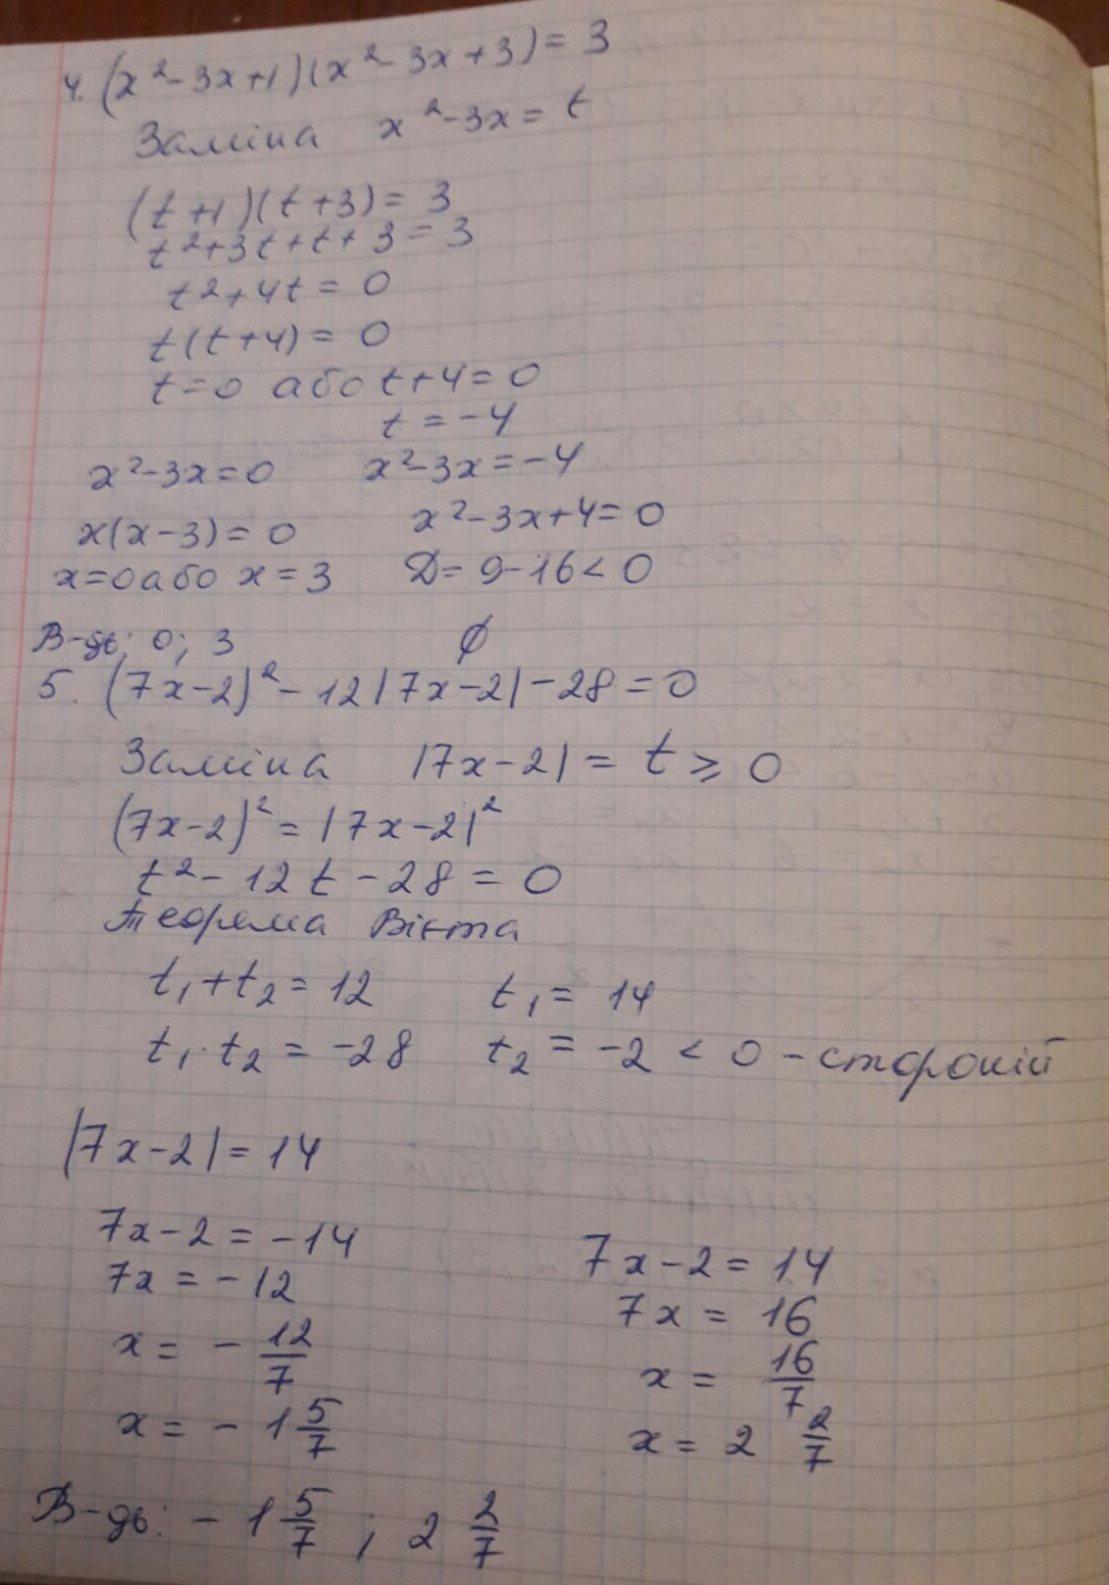 4. (x²-3x+1)(x²-3x+3)=3
Заміна x²-3x=t
(t+1)(t+3)=3
t²+3t+t+3=3
t²+4t=0
t(t+4)=0
t=0 або t+4=0
t=-4
x²-3x=0 x²-3x=-4
x(x-3)=0 x²-3x+4=0
x=0 або x=3 D=9-16<0
В-дь: 0; 3 ∅
5. (7x-2)²-12|7x-2|-28=0
Заміна |7x-2|=t≥0
(7x-2)²=|7x-2|²
t²-12t-28=0
Теорема Вієта
t₁+t₂=12 t₁=14
t₁·t₂=-28 t₂=-2<0-стороній
|7x-2|=14
7x-2=-14 7x-2=14
7x=-12 7x=16
x=-12/7 x=16/7
x=-1 5/7 x=2 2/7
В-дь: -1 5/7; 2 2/7